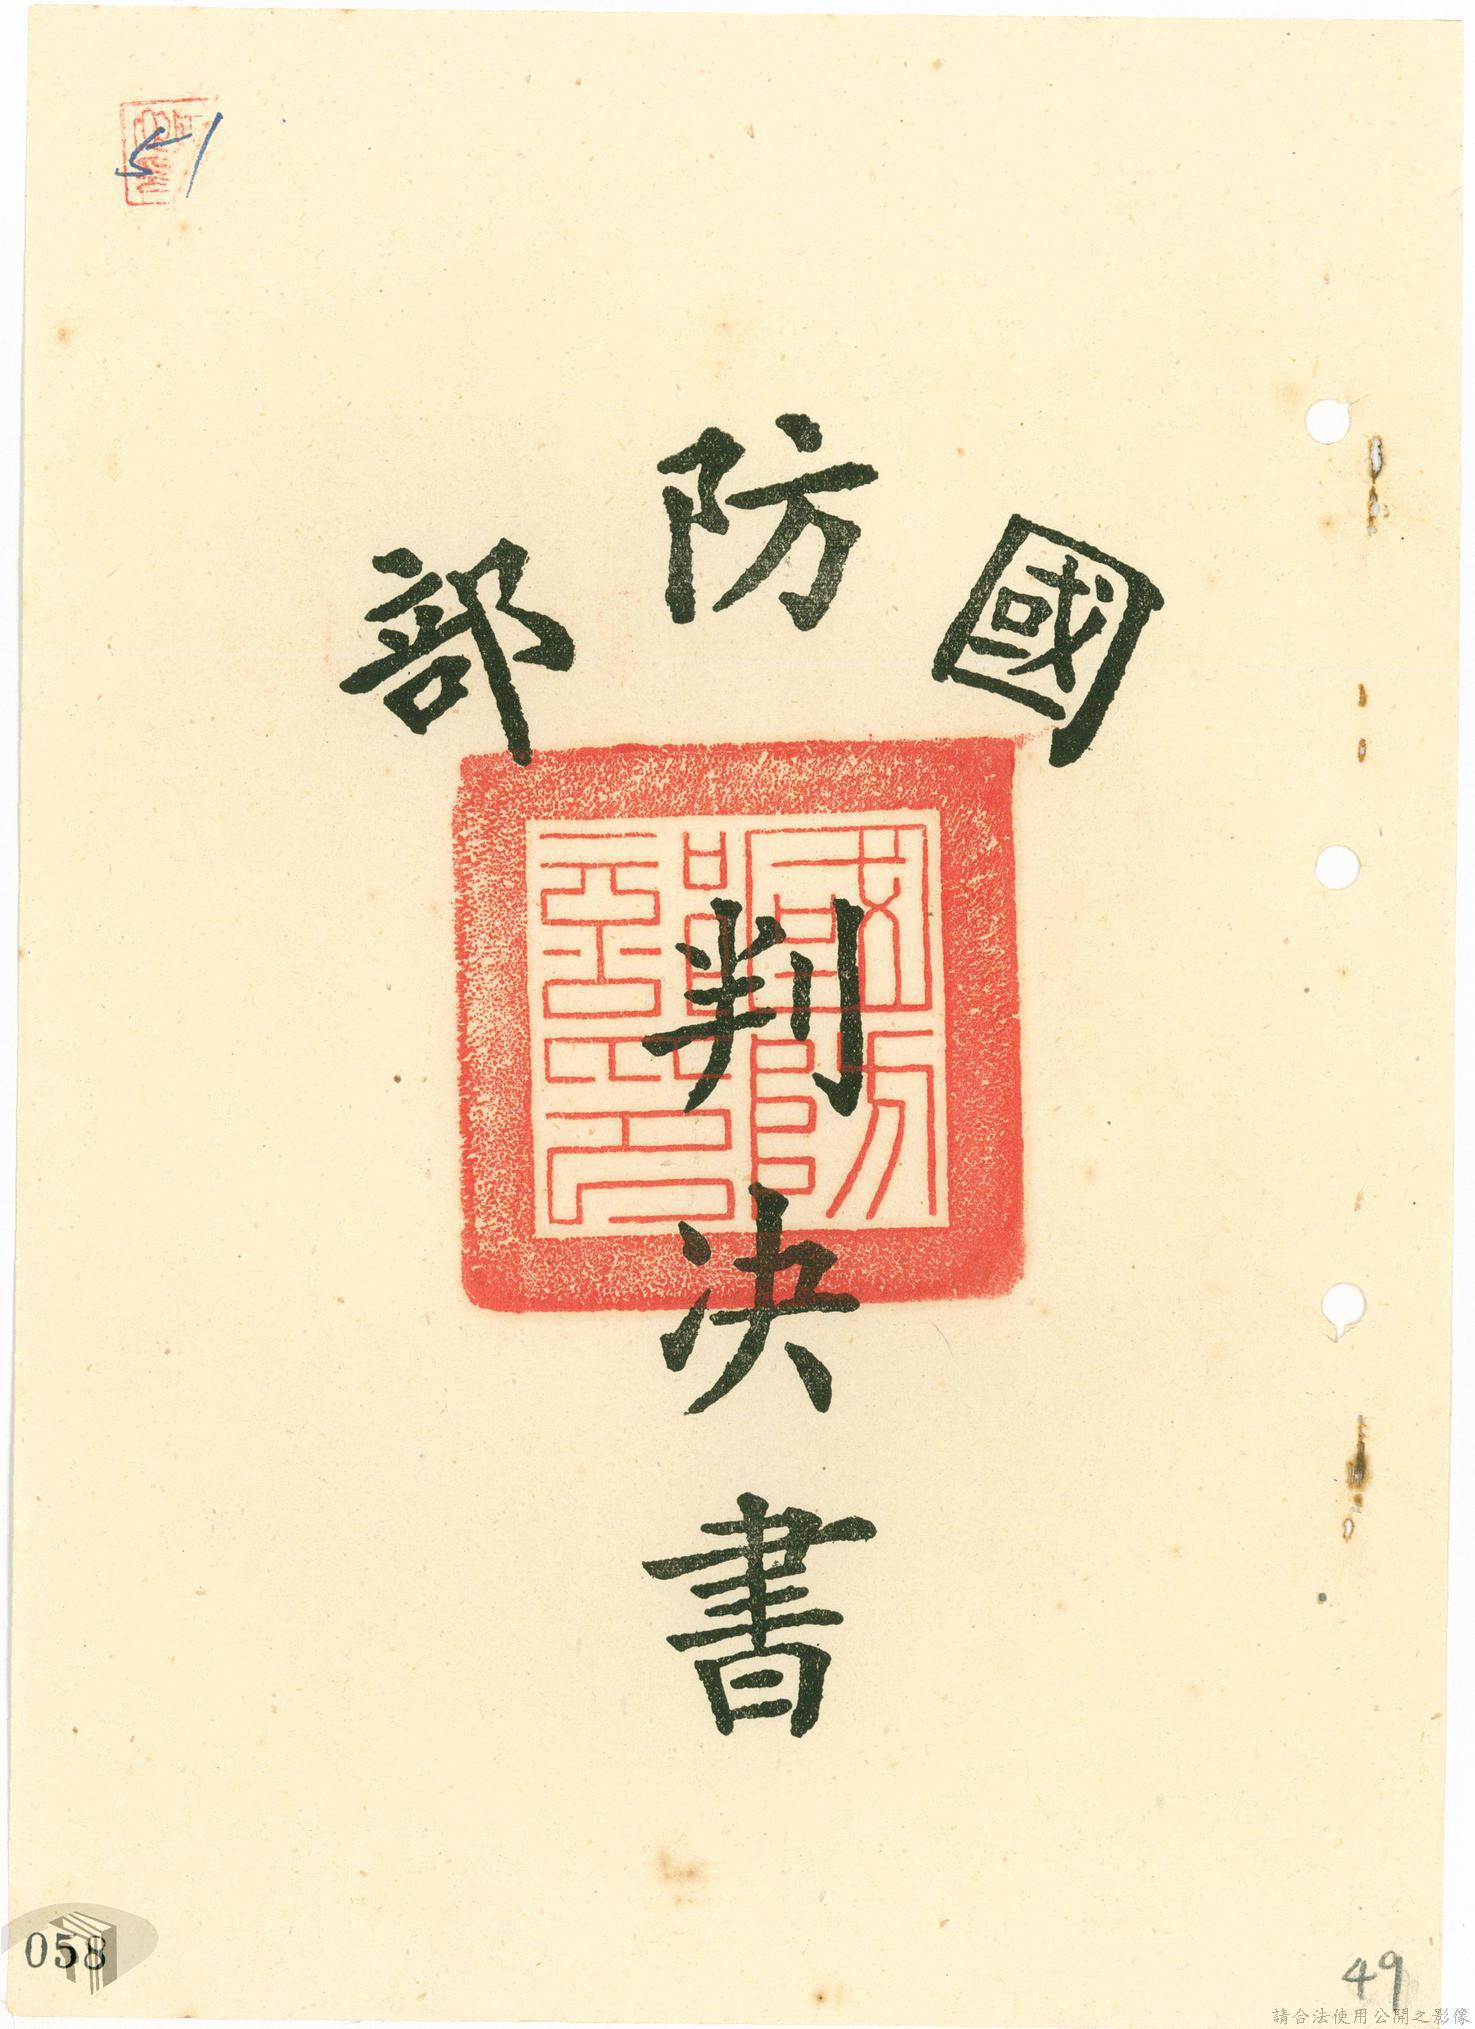 51
國防部
判決書
058
49
請合法使用公開之影像